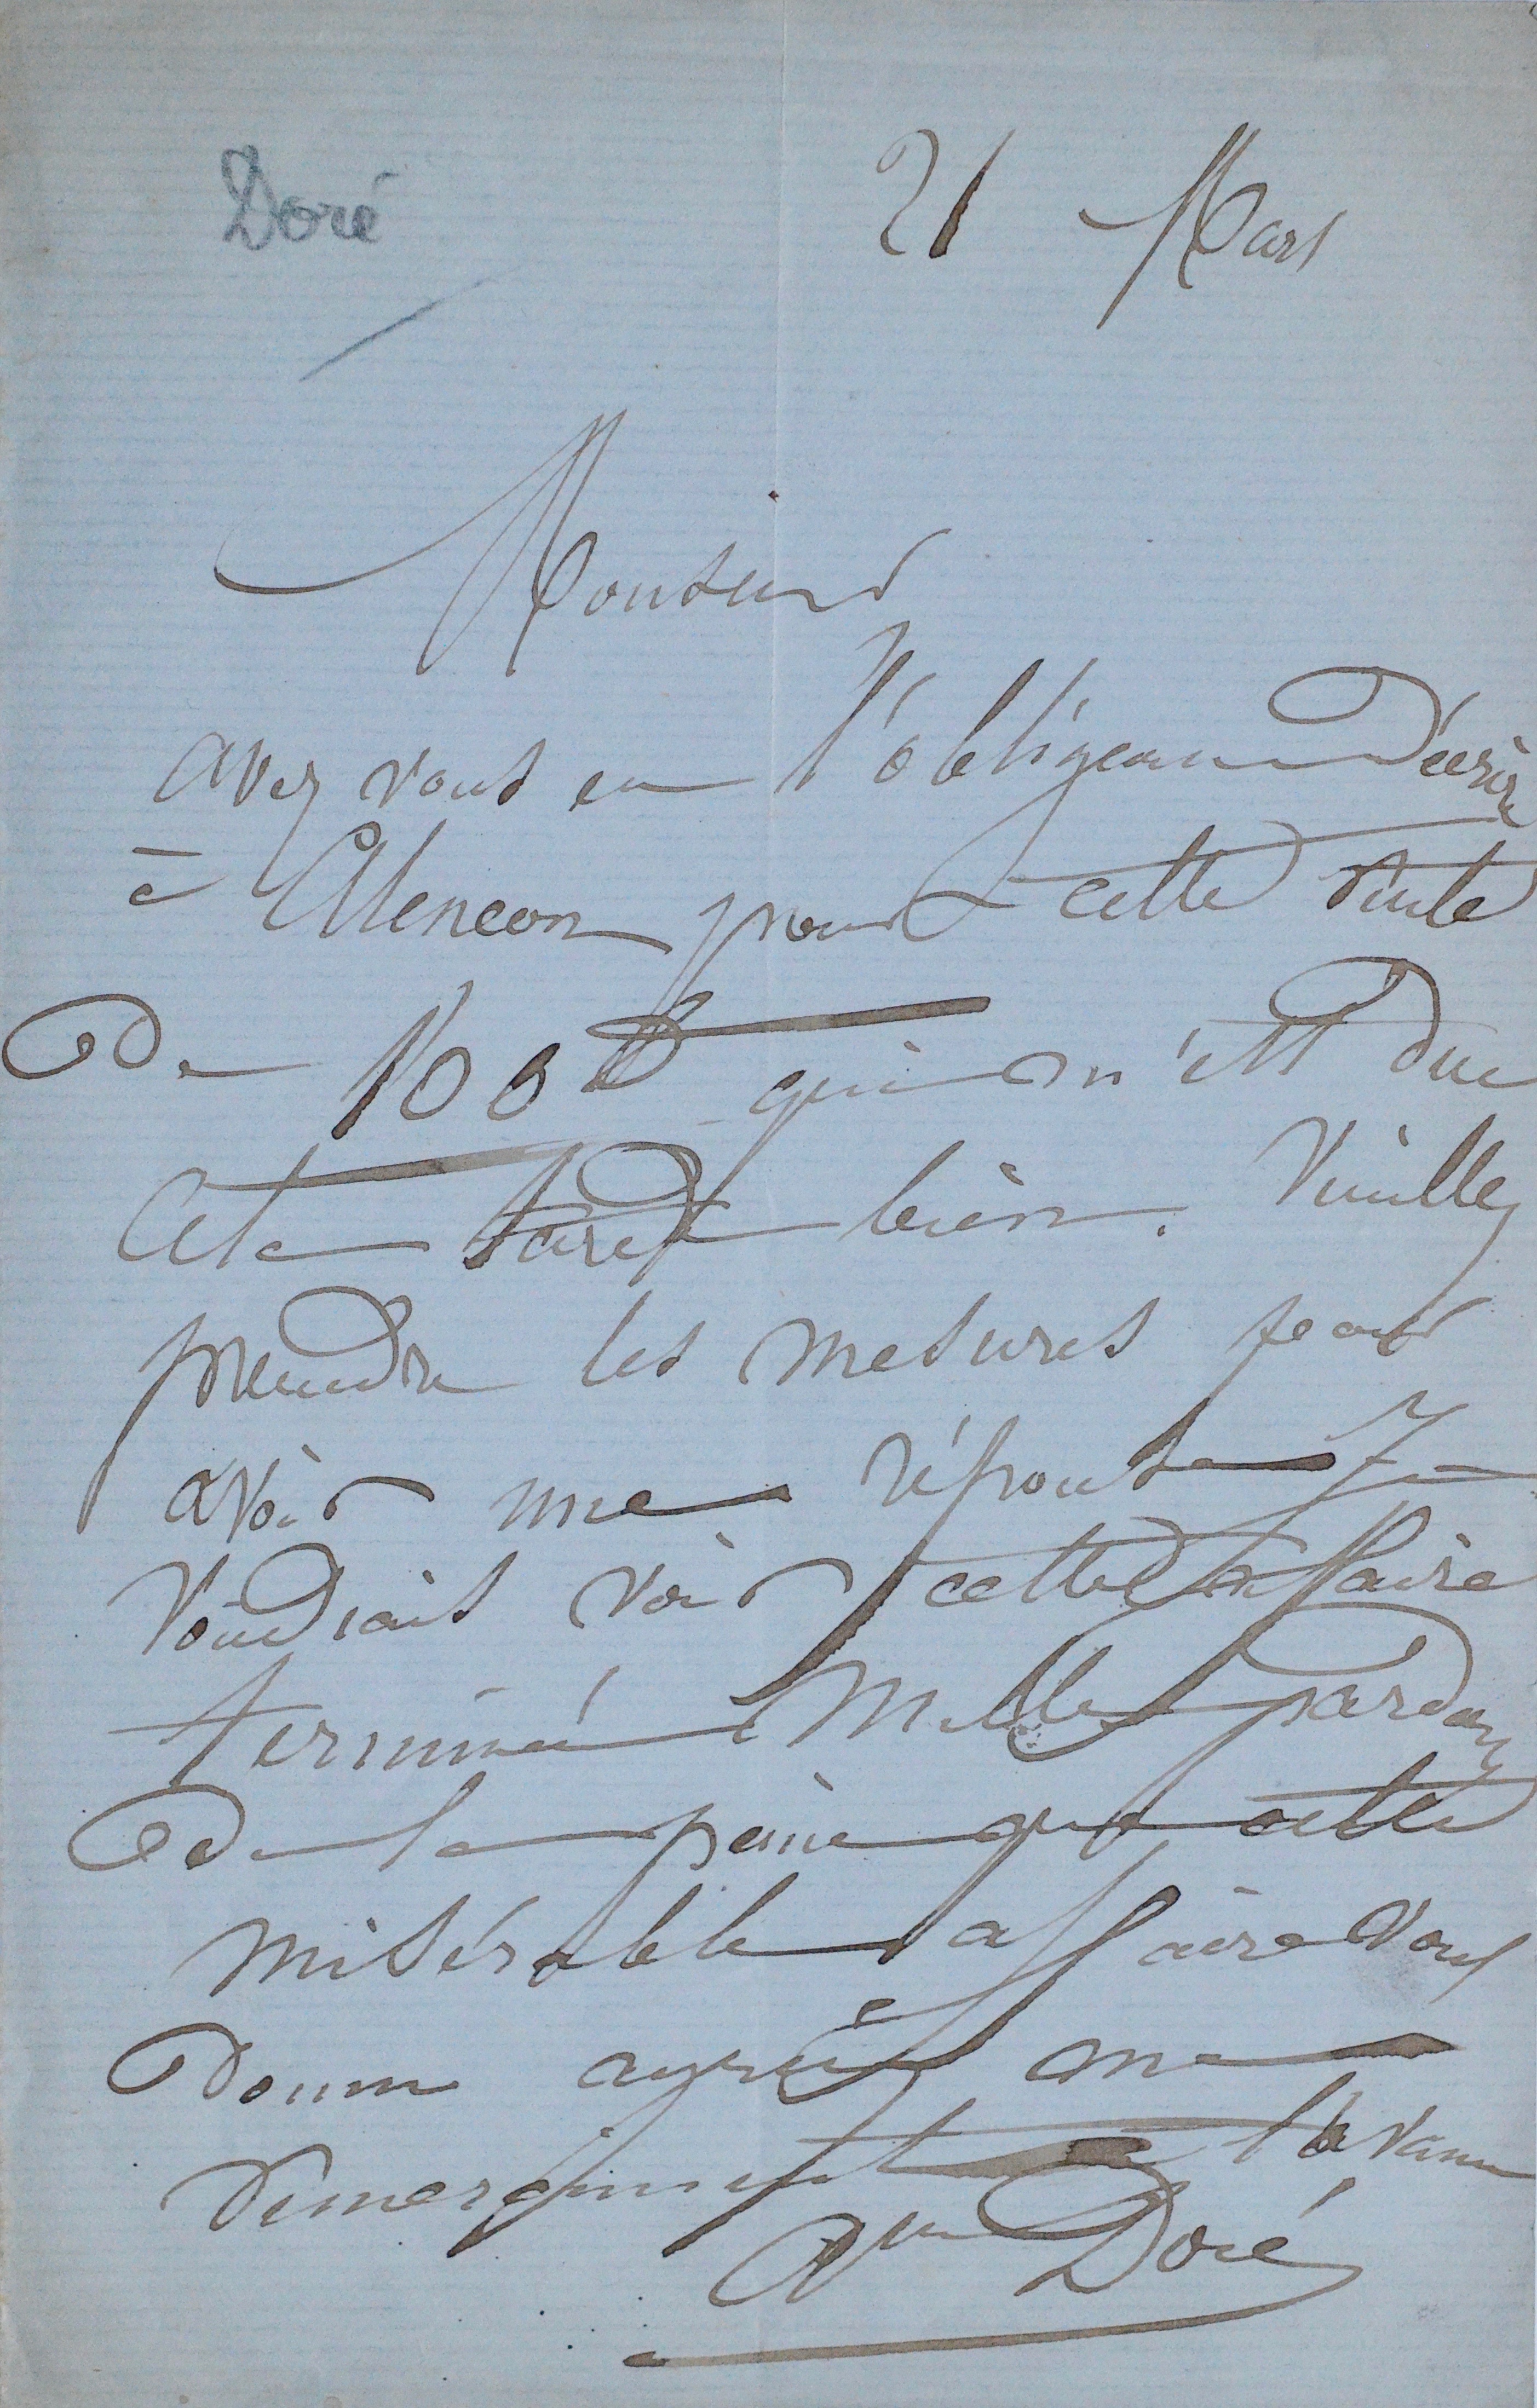 Doré
21 Mars
Monsieur
avez vous eu l'obligeance d'écrire
à Alencon pour cette vente
De 100 qui m'est due
Cela tarde bien. Veuillez
prendre les mesures pour
avoir une réponse Je
voudrais voir cette affaire
terminée Mille pardons
De la peine que cette
misérable affaire vous
Donne agréez mes
remerciements à l'avance
Gve Doré